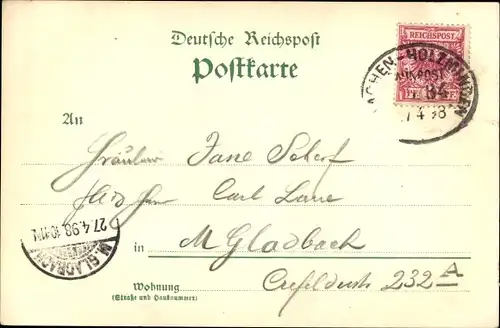 Deutsche Reichspost
Postkarte
REICHSPOST
AACHEN-HOLZMINDEN
BAHNPOST
An
Fräulein Jane Scherf
Carl Lane
27.4.98
M. GLADBACH
in M Gladbach
Wohnung Crefelderstr 232 A
(Straße und Hausnummer)